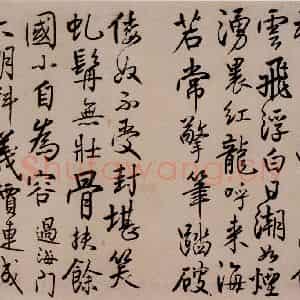 雲飛浮白日潮如煙
湧裹紅龍呼来海
若常擎筆踏破
倭奴不受封堪笑
虬髯無壯骨扶餘
國小自為容 過海門
價連城
Shufawang.CN